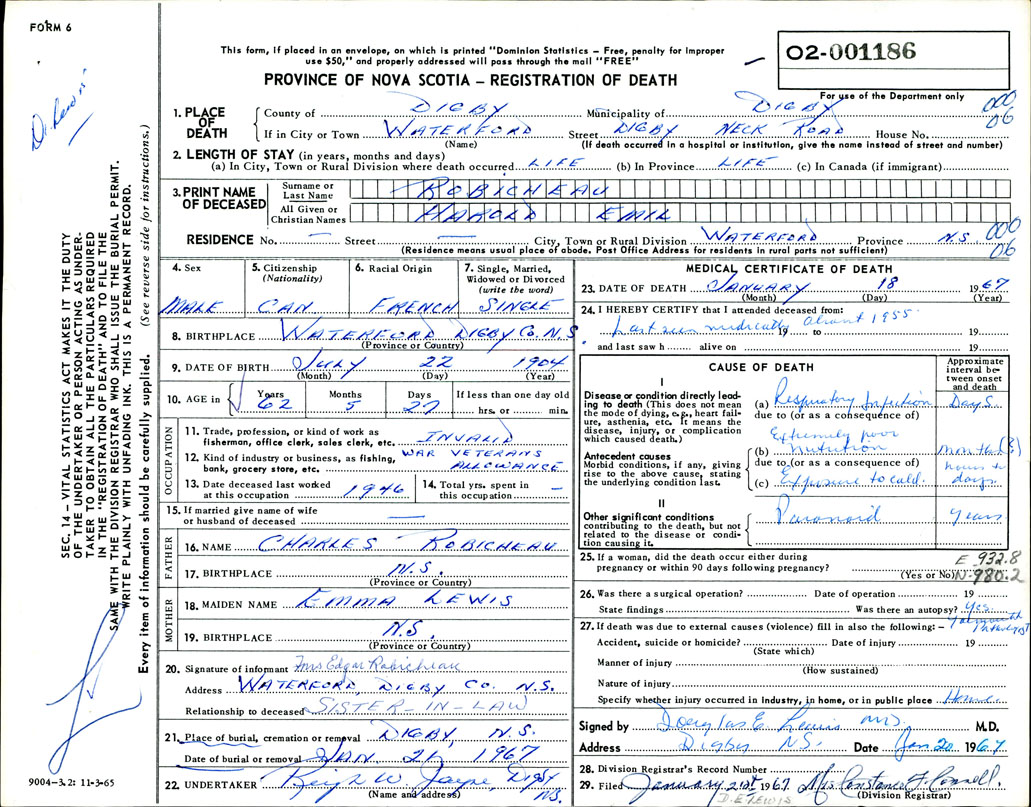 FORM 6
This form, if placed in an envelope, on which is printed "Dominion Statistics – Free, penalty for improper
use $50," and properly addressed will pass through the mail "FREE"
O2-001186
PROVINCE OF NOVA SCOTIA – REGISTRATION OF DEATH
For use of the Department only
D. Lewis
1. PLACE OF DEATH
County of DIGBY Municipality of DIGBY 000 06
If in City or Town WATERFORD Street DIGBY NECK ROAD House No.
(Name) (If death occurred in a hospital or institution, give the name instead of street and number)
2. LENGTH OF STAY (in years, months and days)
(a) In City, Town or Rural Division where death occurred LIFE (b) In Province LIFE (c) In Canada (if immigrant)
3. PRINT NAME OF DECEASED
Surname or Last Name ROBICHEAU
All Given or Christian Names HAROLD EMIL
RESIDENCE No. — Street — City, Town or Rural Division WATERFORD Province N.S. 000 06
(Residence means usual place of abode. Post Office Address for residents in rural parts not sufficient)
4. Sex
MALE
5. Citizenship (Nationality)
CAN
6. Racial Origin
FRENCH
7. Single, Married, Widowed or Divorced (write the word)
SINGLE
8. BIRTHPLACE WATERFORD DIGBY CO. N.S.
(Province or Country)
9. DATE OF BIRTH JULY 22 1904
(Month) (Day) (Year)
10. AGE in Years 62 Months 5 Days 27 If less than one day old hrs. or min.
OCCUPATION
11. Trade, profession, or kind of work as fisherman, office clerk, sales clerk, etc. INVALID
12. Kind of industry or business, as fishing, bank, grocery store, etc. WAR VETERANS ALLOWANCE
13. Date deceased last worked at this occupation 1946
14. Total yrs. spent in this occupation —
15. If married give name of wife or husband of deceased —
FATHER
16. NAME CHARLES ROBICHEAU
17. BIRTHPLACE N.S.
(Province or Country)
MOTHER
18. MAIDEN NAME EMMA LEWIS
19. BIRTHPLACE N.S.
(Province or Country)
20. Signature of informant Mrs Edgar Robicheau
Address WATERFORD, DIGBY CO. N.S.
Relationship to deceased SISTER-IN-LAW
21. Place of burial, cremation or removal DIGBY, N.S.
Date of burial or removal JAN 21, 1967
22. UNDERTAKER W. Jayne, DIGBY NS.
(Name and address)
MEDICAL CERTIFICATE OF DEATH
23. DATE OF DEATH JANUARY 18 1967
(Month) (Day) (Year)
24. I HEREBY CERTIFY that I attended deceased from:
Last seen medically about 1955. 19 to 19
and last saw h alive on 19
CAUSE OF DEATH
Approximate interval between onset and death
I
Disease or condition directly leading to death (This does not mean the mode of dying, e.g., heart failure, asthenia, etc. It means the disease, injury, or complication which caused death.)
(a) Respiratory Infection Days
due to (or as a consequence of)
Antecedent causes
Morbid conditions, if any, giving rise to the above cause, stating the underlying condition last.
(b) Extremely poor nutrition month(s)
due to (or as a consequence of)
(c) Exposure to cold. hours to days
II
Other significant conditions
contributing to the death, but not related to the disease or condition causing it.
Paranoid years
25. If a woman, did the death occur either during
pregnancy or within 90 days following pregnancy?
(Yes or No)
E 932.8
N-980.2
26. Was there a surgical operation? Date of operation 19
State findings Was there an autopsy? Yes.
Yarmouth
27. If death was due to external causes (violence) fill in also the following: –
Accident, suicide or homicide? Date of injury 19
(State which)
Manner of injury
(How sustained)
Nature of injury
Specify whether injury occurred in industry, in home, or in public place Home
Signed by Douglas E. Lewis MD. M.D.
Address Digby NS. Date Jan 20, 1967
28. Division Registrar's Record Number
29. Filed January 21st 1967 Mrs Constance F. Connell
(Division Registrar)
D.E. LEWIS
SEC. 14 – VITAL STATISTICS ACT MAKES IT THE DUTY
OF THE UNDERTAKER OR PERSON ACTING AS UNDER-
TAKER TO OBTAIN ALL THE PARTICULARS REQUIRED
IN THE "REGISTRATION OF DEATH" AND TO FILE THE
SAME WITH THE DIVISION REGISTRAR WHO SHALL ISSUE THE BURIAL PERMIT.
WRITE PLAINLY WITH UNFADING INK. THIS IS A PERMANENT RECORD.
Every item of information should be carefully supplied. (See reverse side for instructions.)
9004–3.2: 11-3-65